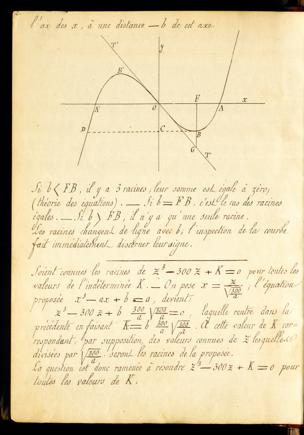 l'ax des x, à une distance — b de cet axe.
T'
y
E
F
A'
O
A
x
D
C
B
G
T
Si b < FB, il y a 3 racines; leur somme est égale à zéro,
(théorie des équations). — Si b = FB, c'est le cas des racines
égales. — Si b > FB, il n'y a qu'une seule racine.
Les racines changent de signe avec b; l'inspection de la courbe
fait immédiatement discerner leur signe.
Soient connues les racines de z³ — 300 z + K = 0 pour toutes les
valeurs de l'indéterminée K. — On pose x = z / √(300/a), l'équation
proposée x³ — ax + b = 0, devient:
z³ — 300 z + b 300/a √(300/a) = 0, laquelle rentre dans la
précédente en faisant K = b 300/a √(300/a). A cette valeur de K cor-
respondant, par supposition, des valeurs connues de z lesquelles
divisées par √(300/a) seront les racines de la proposée.
La question est donc ramenée à résoudre z³ — 300 z + K = 0 pour
toutes les valeurs de K.